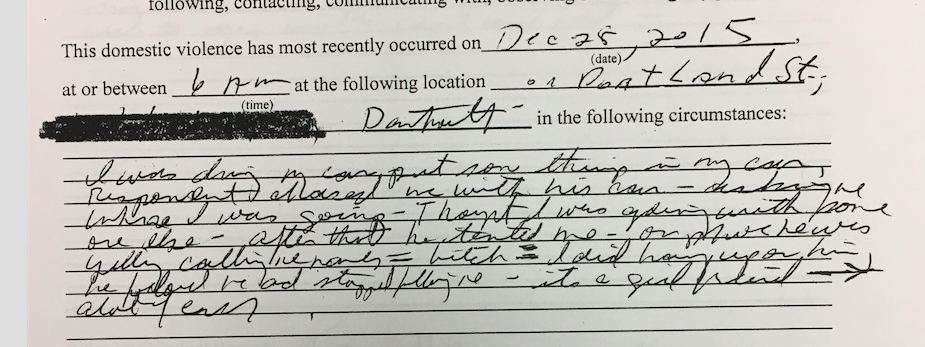 following, contacting, communicating with,
This domestic violence has most recently occurred on Dec 25, 2015,
(date)
at or between 6 Am at the following location on Portland St.,
(time)
in the following circumstances:
I was my car, put some things in my car,
Respondent chased me with his car - asking me
where I was going - Thought I was going with some
one else - after that he texted me - on phone he was
yelling calling me names = bitch = I did hang up on him
he me - its a girl friend →